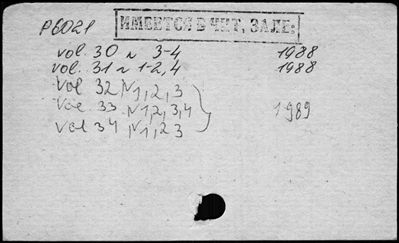 P6021
ИМЕЕТСЯ В ЧИТ. ЗАЛЕ.
vol. 30 N 3-4 1988
vol. 31 N 1-2,4 1988
Vol 32 N1,2,3
Vol 33 N1,2,3,4 1989
Vol 34 N1,2 3